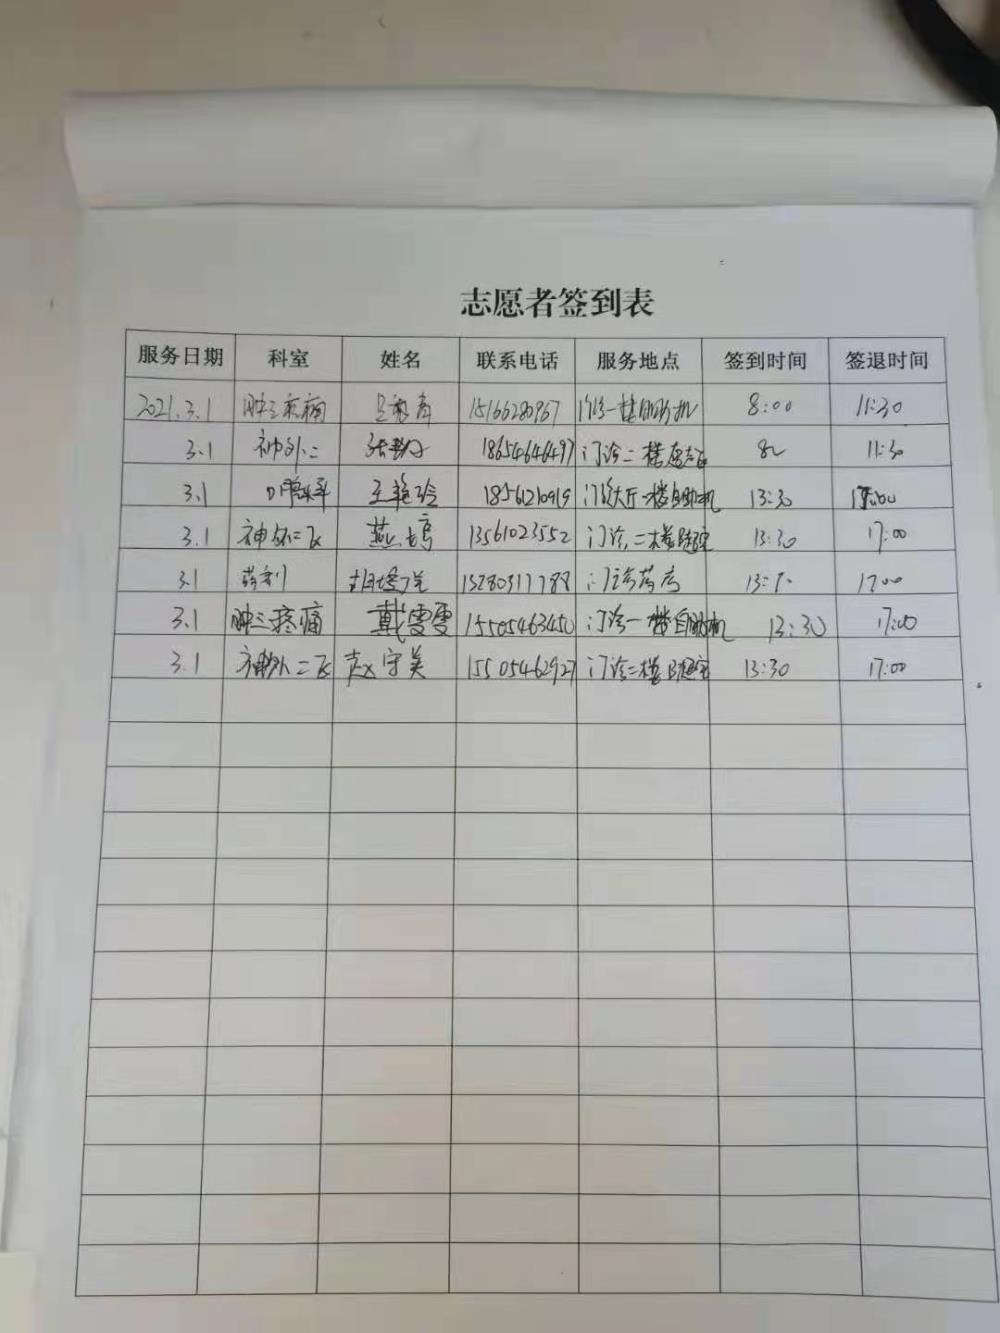 志愿者签到表
服务日期 科室 姓名 联系电话 服务地点 签到时间 签退时间
2021.3.1 肿三疼痛 15166280967 门诊一楼自助机 8:00 11:30
3.1 神外二 18654646497 门诊二楼 11:30
3.1 王艳玲 1856210919 门诊大厅一楼自助机 13:30 17:00
3.1 神外二区 燕 13561023552 门诊二楼 13:30 17:00
3.1 药剂 15280317788 门诊药房 17:00
3.1 肿三疼痛 戴雯雯 15505463450 门诊一楼自助机 13:30 17:00
3.1 神外二区 赵守美 15505462927 门诊二楼B超室 13:30 17:00